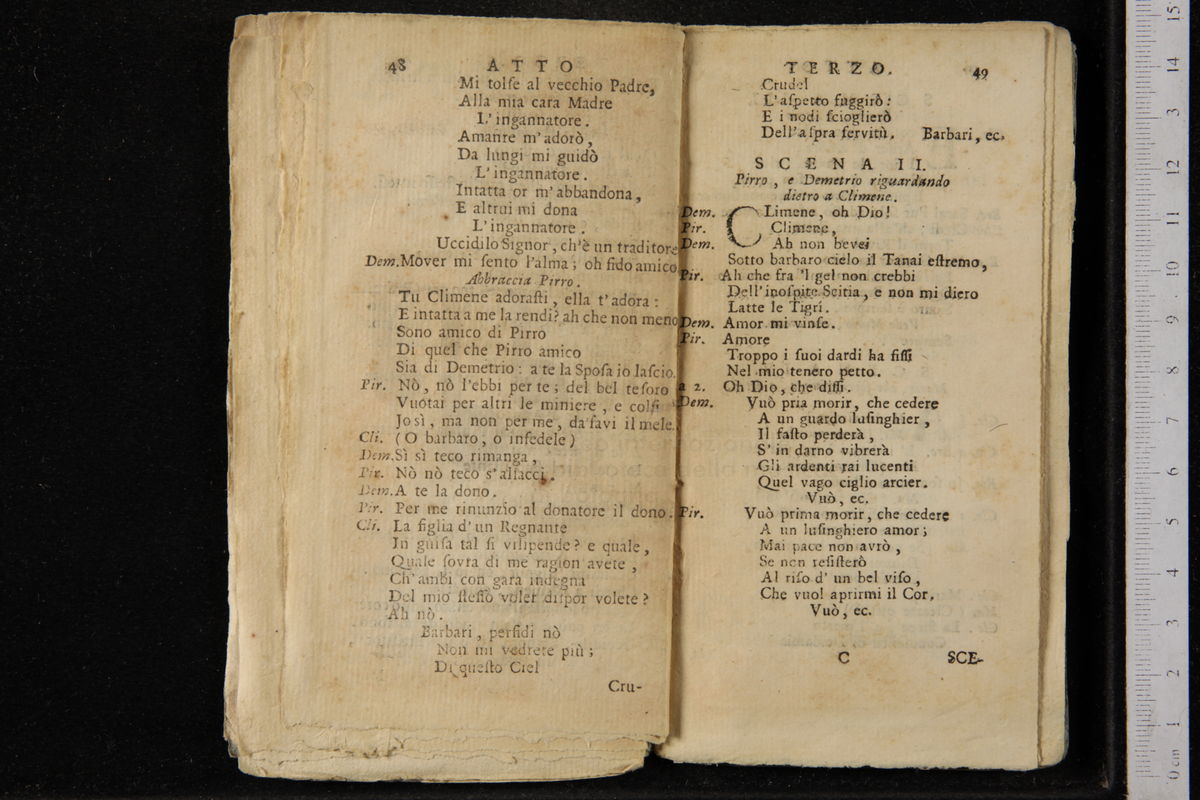 48 ATTO
Mi tolse al vecchio Padre,
Alla mia cara Madre
L'ingannatore.
Amante m'adorò,
Da lungi mi guidò
L'ingannatore.
Intatta or m'abbandona,
E altrui mi dona
L'ingannatore.
Uccidilo Signor, ch'è un traditore
Dem. Mover mi sento l'alma; oh fido amico
Abbraccia Pirro.
Tu Climene adorasti, ella t'adora:
E intatta a me la rendi? ah che non meno
Sono amico di Pirro
Di quel che Pirro amico
Sia di Demetrio: a te la Sposa io lascio.
Pir. Nò, nò l'ebbi per te; del bel tesoro
Vuotai per altri le miniere, e colsi
Jo sì, ma non per me, da favi il mele.
Cli. (O barbaro, o infedele)
Dem. Sì sì teco rimanga,
Pir. Nò nò teco s'allacci.
Dem. A te la dono.
Pir. Per me rinunzio al donatore il dono.
Cli. La figlia d'un Regnante
In guisa tal si vilipende? e quale,
Quale sovra di me ragion avete,
Ch'ambi con gara indegna
Del mio stesso voler dispor volete?
Ah nò.
Barbari, perfidi nò
Non mi vedrete più;
Di questo Ciel
Cru-
TERZO. 49
Crudel
L'aspetto fuggirò:
E i nodi scioglierò
Dell'aspra servitù. Barbari, ec.
SCENA II.
Pirro, e Demetrio riguardando
dietro a Climene.
Dem. CLimene, oh Dio!
Pir. Climene,
Dem. Ah non bevei
Sotto barbaro cielo il Tanai estremo,
Pir. Ah che fra 'l gel non crebbi
Dell'inospite Scitia, e non mi diero
Latte le Tigri.
Dem. Amor mi vinse.
Pir. Amore
Troppo i suoi dardi ha fissi
Nel mio tenero petto.
a 2. Oh Dio, che dissi.
Dem. Vuò pria morir, che cedere
A un guardo lusinghier,
Il fasto perderà,
S' in darno vibrerà
Gli ardenti rai lucenti
Quel vago ciglio arcier.
Vuò, ec.
Pir. Vuò prima morir, che cedere
A un lusinghiero amor;
Mai pace non avrò,
Se non resisterò
Al riso d' un bel viso,
Che vuol aprirmi il Cor.
Vuò, ec.
C SCE-
0 cm 1 2 3 4 5 6 7 8 9 10 11 12 13 14 15